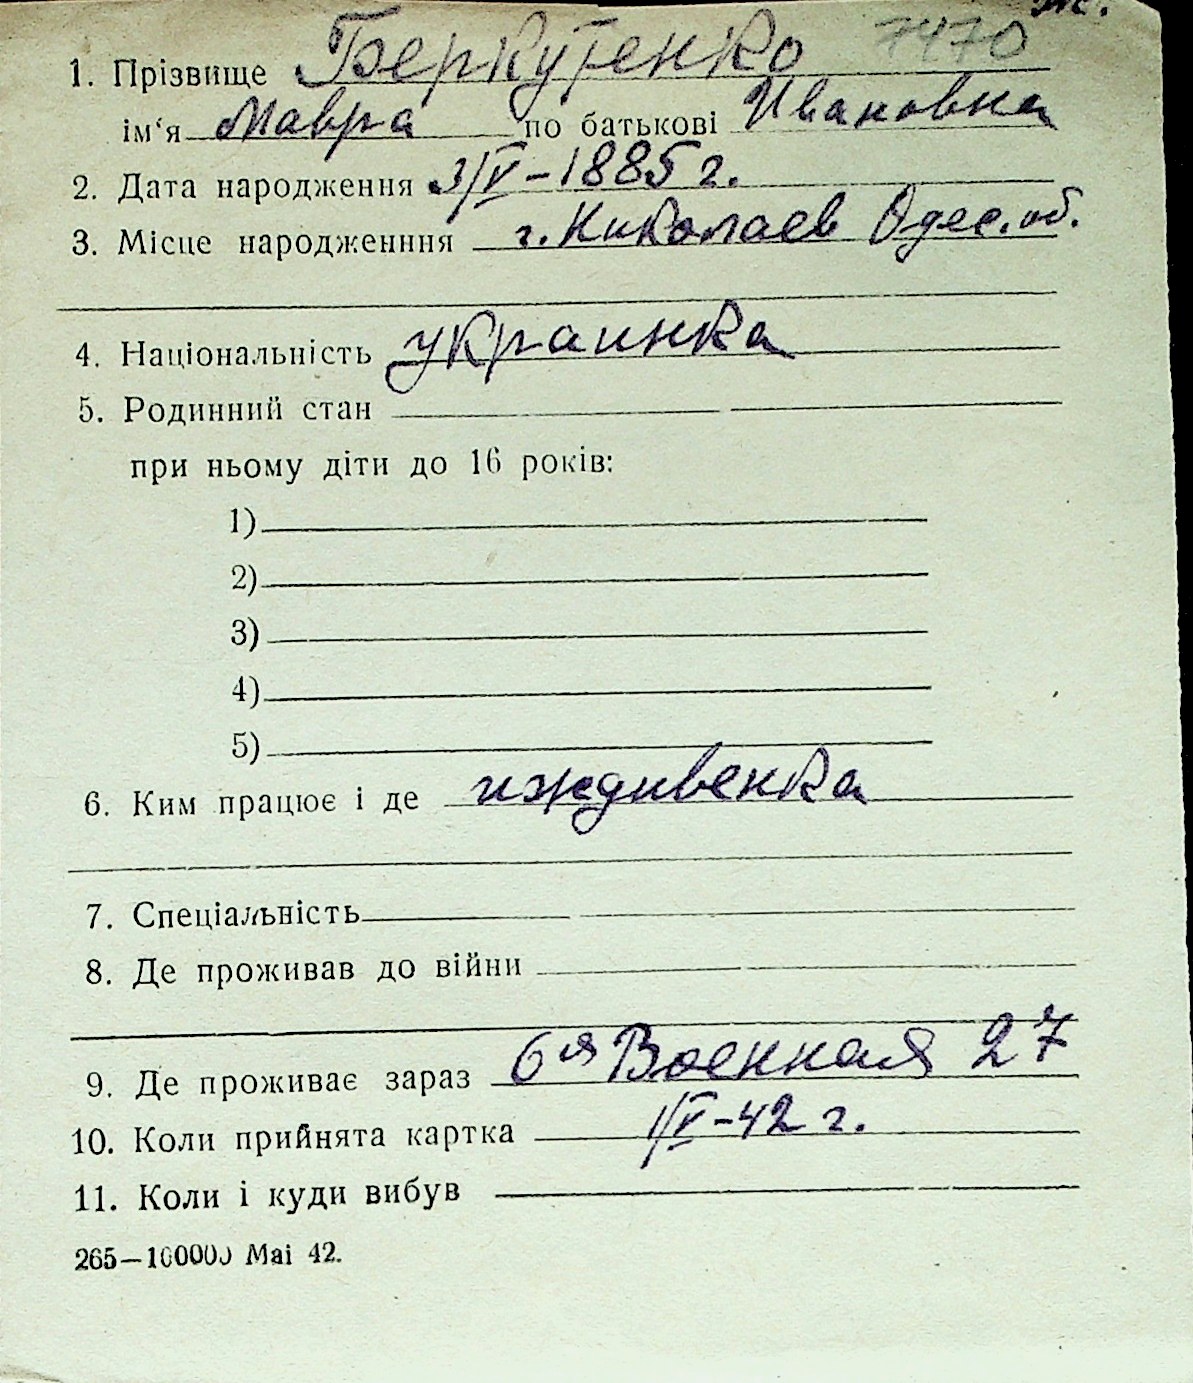 ж.
7470
1. Прізвище Беркутенко
ім‘я Мавра по батькові Ивановна
2. Дата народження 3/V – 1885 г.
3. Місце народженння г. Николаев Одес. об.
4. Національність украинка
5. Родинний стан
при ньому діти до 16 років:
1)
2)
3)
4)
5)
6. Ким працює і де иждивенка
7. Спеціальність
8. Де проживав до війни
9. Де проживає зараз 6ая Военная 27
10. Коли прийнята картка 1/V – 42 г.
11. Коли і куди вибув
265—100000 Маі 42.